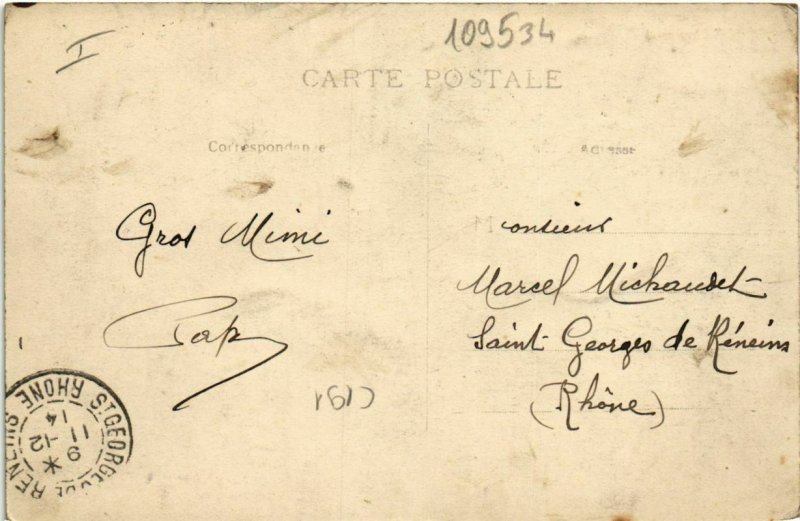 109534
I
CARTE POSTALE
Correspondance
Adresse
Gros Mimi
Pap
Monsieur
Marcel Michaudet
Saint Georges de Réneins
(Rhône)
ST GEORGES DE RENEINS
RHONE
11
9 - 2
14